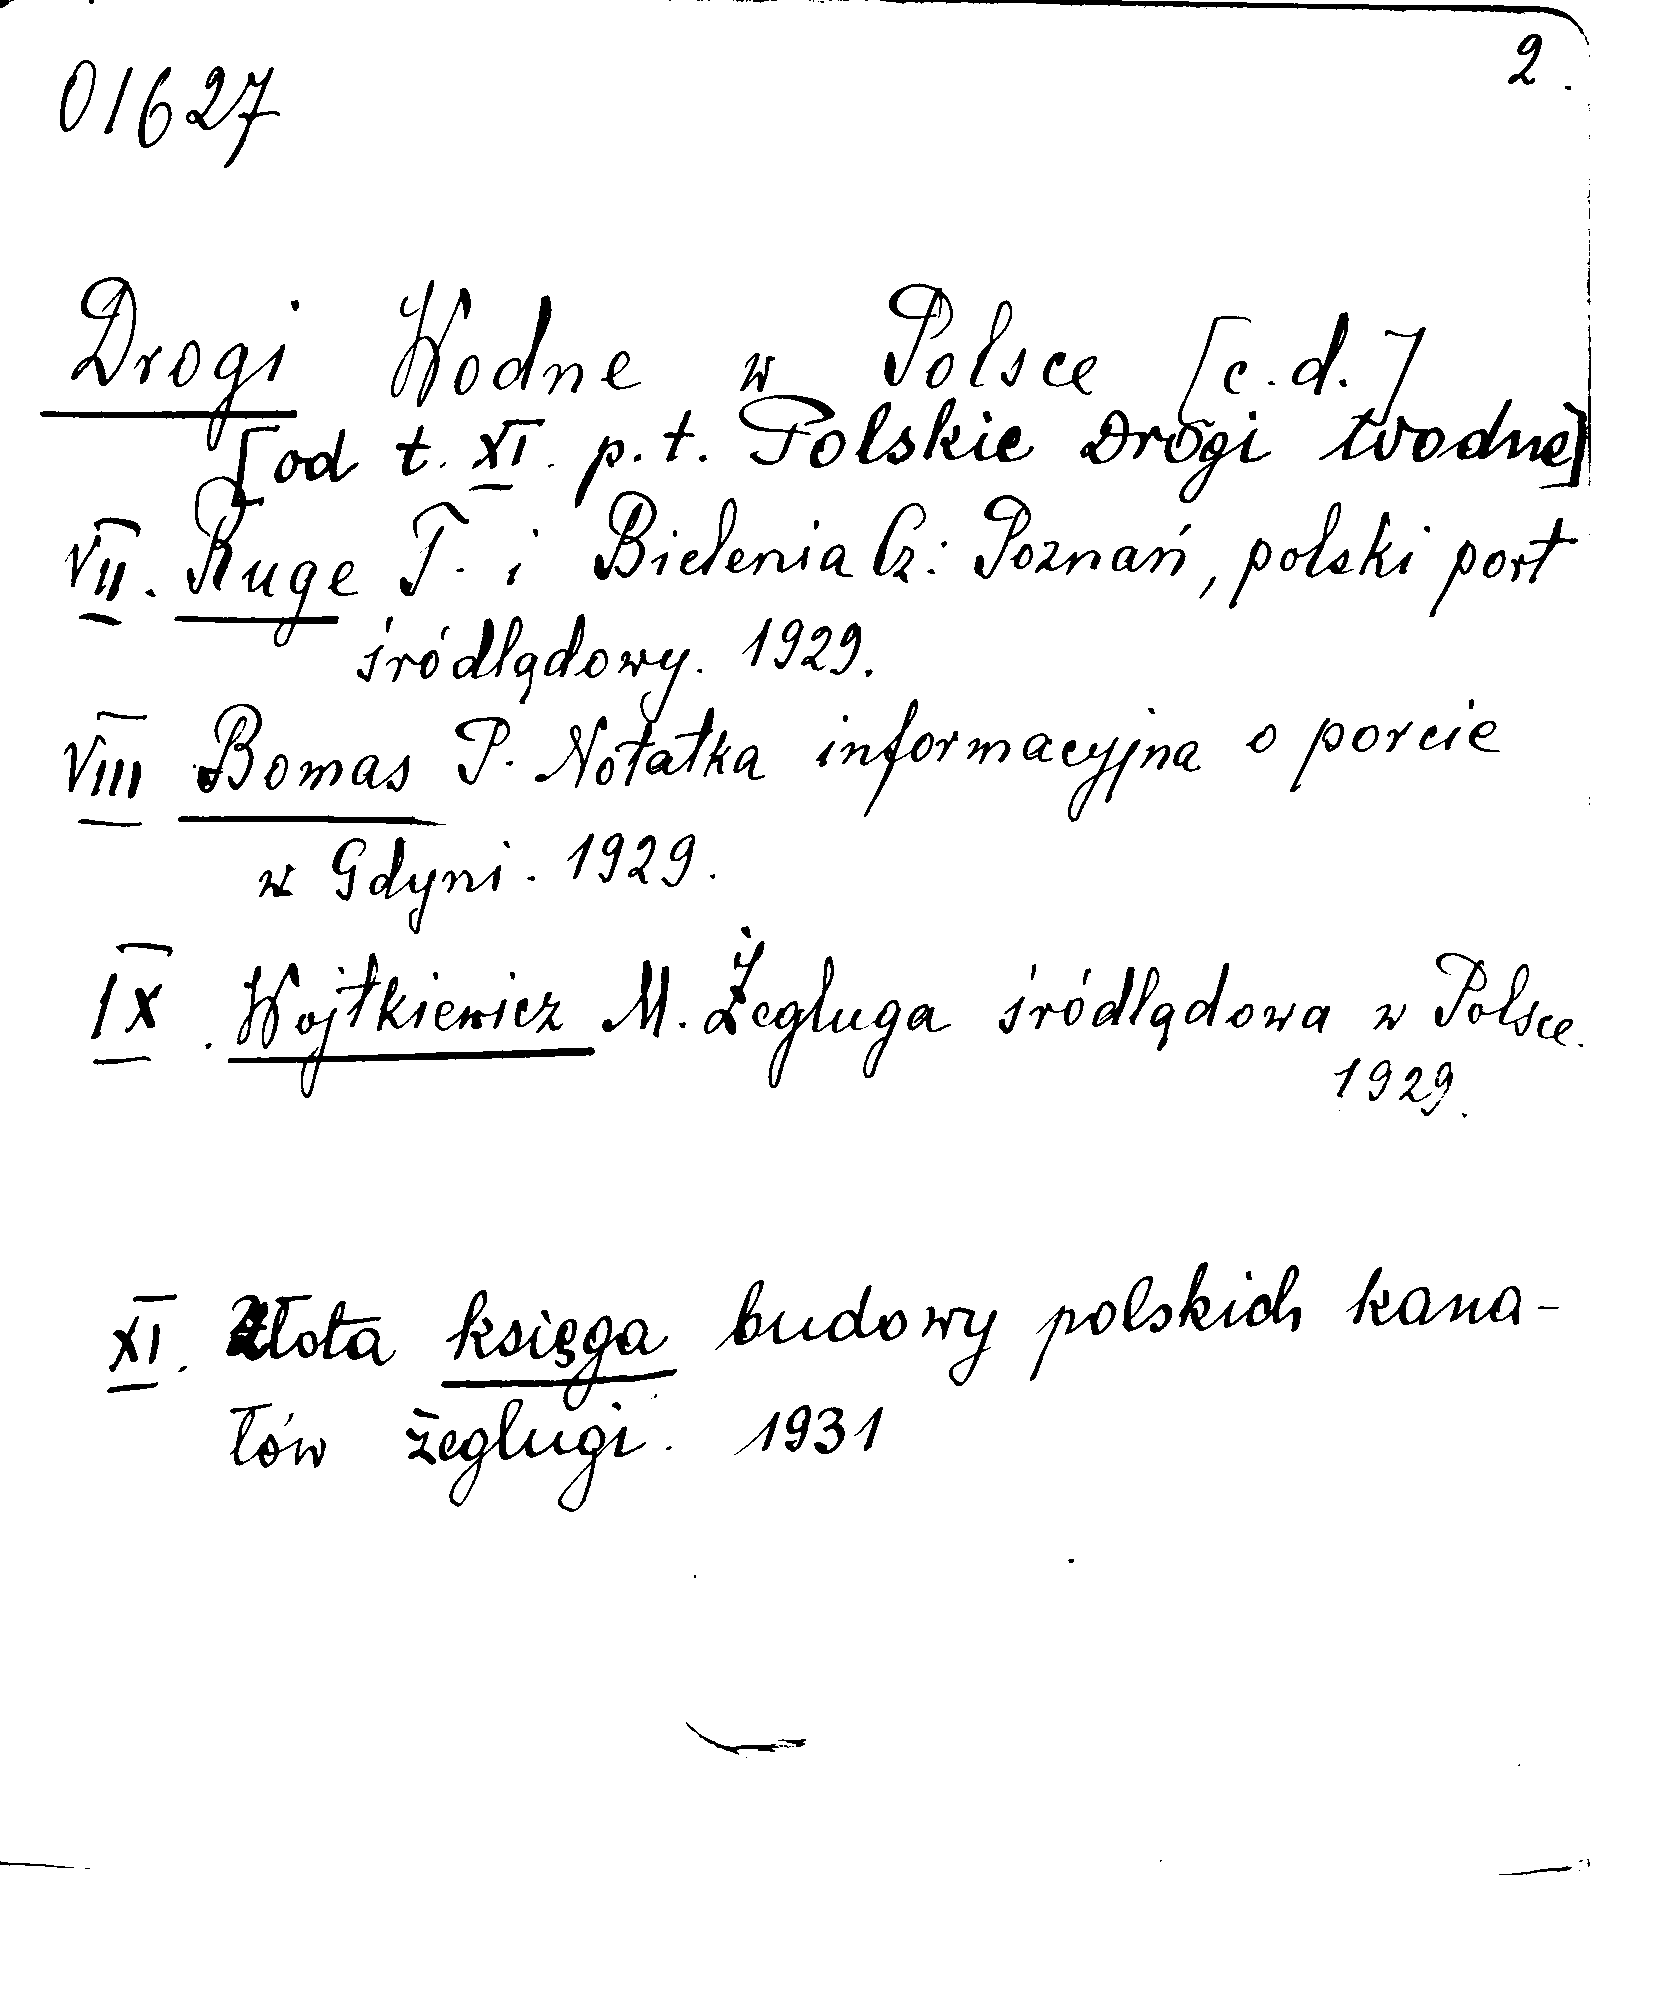 2.
01627
Drogi Wodne w Polsce [c.d.]
[od t. XI. p.t. Polskie Drogi Wodne]
VII. Ruge T. i Bielenia Cz: Poznań, polski port
śródlądowy. 1929.
VIII Bomas P. Notatka informacyjna o porcie
w Gdyni. 1929.
IX. Wojtkiewicz M. Żegluga śródlądowa w Polsce.
1929.
XI. Złota księga budowy polskich kana-
łów żeglugi. 1931